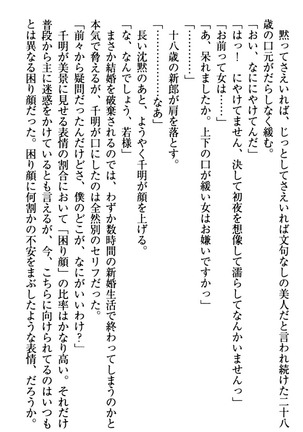 黙ってさえいれば、じっとしてさえいれば文句なしの美人だと言われ続けた二十八
歳の口元がだらしなく緩む。
「おい、なににやけてんだ」
「はっ！　にやけてません、決して初夜を想像して濡らしてなんかいませんっ」
「お前って女は……」
「あ、呆れましたか。上下の口が緩い女はお嫌いですかっ」
十八歳の新郎が肩を落とす。
「…………なあ」
長い沈黙のあと、ようやく千明が顔を上げる。
「な、なんでしょう、若様」
まさか結婚を破棄されるのでは、わずか数時間の新婚生活で終わってしまうのかと
本気で脅えるが、千明が口にしたのは全然別のセリフだった。
「前々から疑問だったんだけどさ、僕のどこが、なにがいいわけ？」
千明が美景に見せる表情の割合において「困り顔」の比率はかなり高い。それだけ
普段から主に迷惑をかけているとも言えるが、今、こちらに向けられてるのはいつも
とは異なる困り顔だった。困り顔に何割かの不安をまぶしたような表情、だろうか。